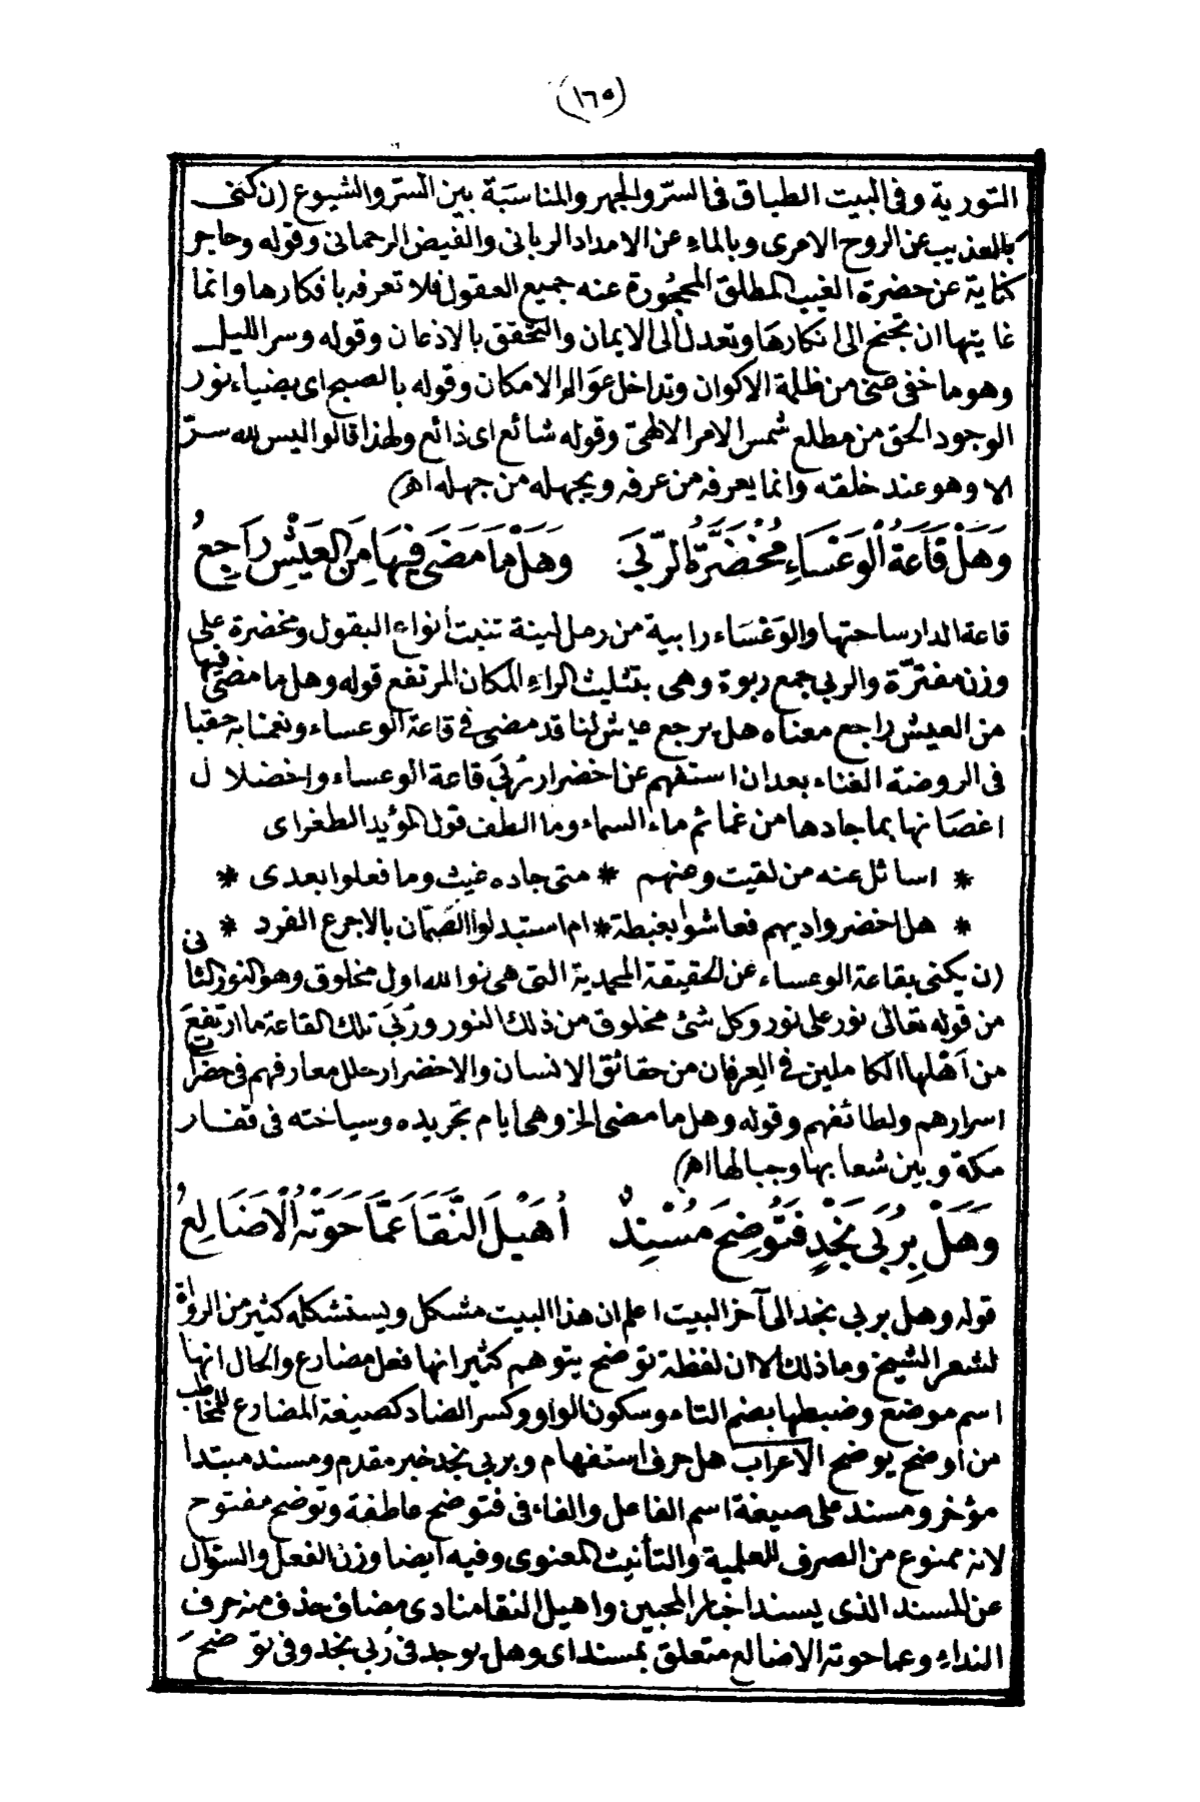 (١٦٥)
التورية وفى البيت الطباق فى الستر والجهر والمناسبة بين الستر والشيوع (ن كنى
بالعذيب عن الروح الامرى وبالماء عن الامداد الربانى والفيض الرحمانى وقوله وحاجر
كناية عن حضرة الغيب المطلق المحجورة عنه جميع العقول فلا تعرفه بافكارها وانما
غايتها ان تجنح الى انكارها وتعدل الى الايمان والتحقق بالاذعان وقوله وسر الليل
وهو ما خفى عنى من ظلمة الاكوان وتداخل عوالم الامكان وقوله بالصبح اى بضياء نور
الوجود الحق من مطلع شمس الامر الالهىّ وقوله شائع اى ذائع ولهذا قالوا ليس لله سرّ
الا وهو عند خلقه وانما يعرفه من عرفه ويجهله من جهله اهـ)
وَهَلْ قَاعَةُ الْوَعْسَاءِ مُخْضَرَّةُ الرُّبَى وَهَلْ مَا مَضَى فِيهَا مِنَ الْعَيْشِ رَاجِعُ
قاعة الدار ساحتها والوَعْسَاء رابية من رمل لينة تنبت أنواع البقول ومخضرة على
وزن مفترّة والربى جمع ربوة وهى بتثليث الراء المكان المرتفع قوله وهل ما مضى فيها
من العيش راجع معناه هل يرجع عيش لنا قد مضى فى قاعة الوعساء ونعمنا به حقبا
فى الروضة الغناء بعد ان استفهم عن اخضرار رُبَى قاعة الوعساء واخضلال
اغصانها بما جادها من غمائم ماء السماء وما الطف قول المؤيد الطغراى
* اسائل عنه من لقيت وعنهم * متى جاده غيث وما فعلوا بعدى *
* هل اخضر واديهم فعاشوا بغبطة * ام استبدلوا الصّمّان بالاجرع الفرد *
(ن يكنى بقاعة الوعساء عن الحقيقة المحمدية التى هى نور الله اول مخلوق وهو النور الثانى
من قوله تعالى نور على نور وكل شئ مخلوق من ذلك النور ورُبَى تلك القاعة ما ارتفع
من اهلها الكاملين فى العِرفان من حقائق الانسان والاخضرار حلل معارفهم فى حضرات
اسرارهم ولطائفهم وقوله وهل ما مضى الخ وهى ايام تجريده وسياحته فى قفار
مكة وبين شعابها وجبالها اهـ)
وَهَلْ بِرُبَى نَجْدٍ فَتُوضِحَ مُسْنِدٌ أُهَيْلَ النَّقَا عَمَّا حَوَتْهُ الْأَضَالِعُ
قوله وهل بربى نجد الى آخر البيت اعلم ان هذا البيت مشكل ويستشكله كثير من الرواة
لشعر الشيخ وما ذلك الا ان لفظة توضح يتوهم كثير انها فعل مضارع والحال انها
اسم موضع وضبطها بضم التاء وسكون الواو وكسر الضاد كصيغة المضارع للمخاطب
من اوضح يوضح الاعراب هل حرف استفهام وبربى نجد خبر مقدم ومسند مبتدا
مؤخر ومسند على صيغة اسم الفاعل والفاء فى فتوضح عاطفة وتوضح مفتوح
لانه ممنوع من الصرف للعلمية والتأنيث المعنوى وفيه ايضا وزن الفعل والسؤال
عن المسند الذى يسند اخبار المحبين واهيل النقا منادى مضاف حذف منه حرف
النداء وعما حوته الاضالع متعلق بمسند اى وهل يوجد فى رُبى نجد وفى توضحَ